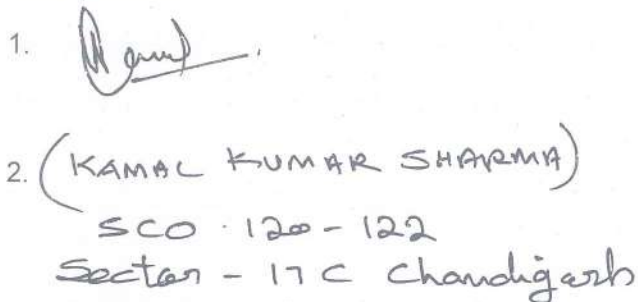 1.
2. (KAMAL KUMAR SHARMA)
SCO . 120 - 122
Sector - 17 C Chandigarh